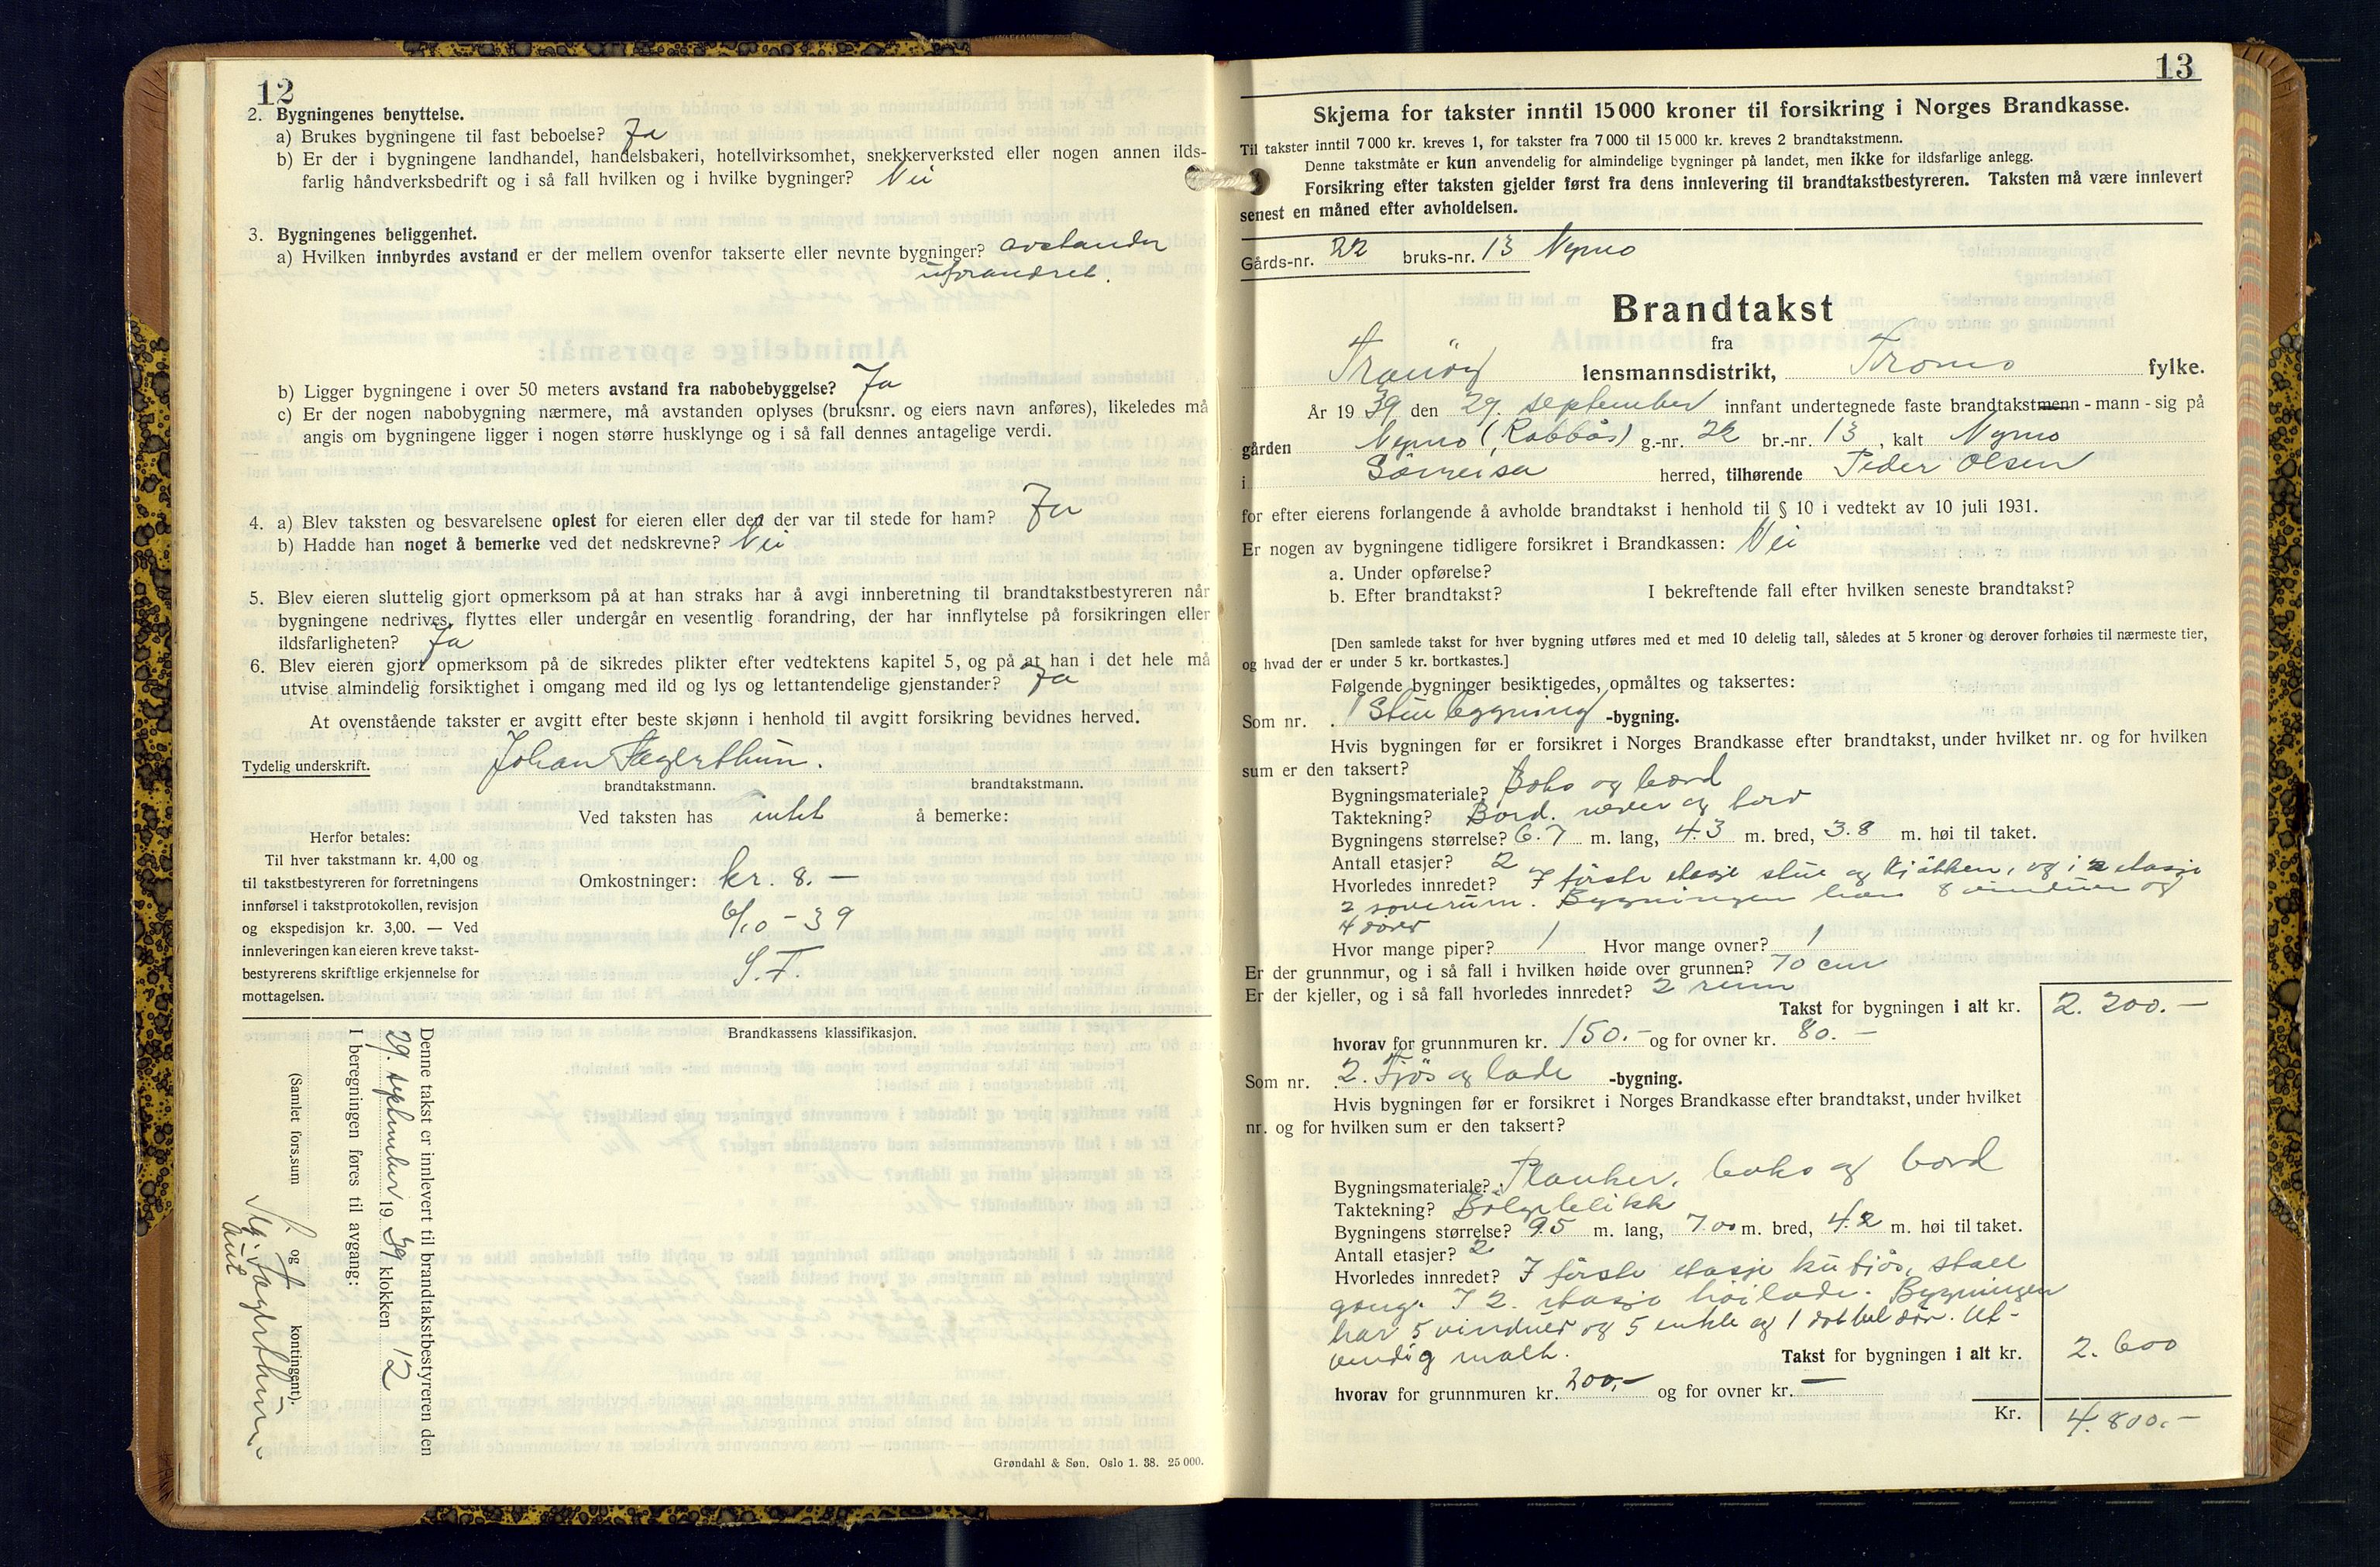 12
2. Bygningenes benyttelse.
a) Brukes bygningene til fast beboelse? Ja
b) Er der i bygningene landhandel, handelsbakeri, hotellvirksomhet, snekkerverksted eller nogen annen ilds-
farlig håndverksbedrift og i så fall hvilken og i hvilke bygninger? Nei
3. Bygningenes beliggenhet.
a) Hvilken innbyrdes avstand er der mellem ovenfor takserte eller nevnte bygninger? avstander
uforandret.
b) Ligger bygningene i over 50 meters avstand fra nabobebyggelse? Ja
c) Er der nogen nabobygning nærmere, må avstanden oplyses (bruksnr. og eiers navn anføres), likeledes må
angis om bygningene ligger i nogen større husklynge og i så fall dennes antagelige verdi.
4. a) Blev taksten og besvarelsene oplest for eieren eller den der var til stede for ham? Ja
b) Hadde han noget å bemerke ved det nedskrevne? Nei
5. Blev eieren sluttelig gjort opmerksom på at han straks har å avgi innberetning til brandtakstbestyreren når
bygningene nedrives, flyttes eller undergår en vesentlig forandring, der har innflytelse på forsikringen eller
ildsfarligheten? Ja
6. Blev eieren gjort opmerksom på de sikredes plikter efter vedtektens kapitel 5, og på at han i det hele må
utvise almindelig forsiktighet i omgang med ild og lys og lettantendelige gjenstander? Ja
At ovenstående takster er avgitt efter beste skjønn i henhold til avgitt forsikring bevidnes herved.
Tydelig underskrift. Johan Fagerthun.
brandtakstmann. brandtakstmann.
Ved taksten has intet å bemerke:
Herfor betales:
Til hver takstmann kr. 4,00 og
til takstbestyreren for forretningens
innførsel i takstprotokollen, revisjon
og ekspedisjon kr. 3,00. — Ved
innleveringen kan eieren kreve takst-
bestyrerens skriftlige erkjennelse for
mottagelsen.
Omkostninger: kr. 8.—
6/10-39
S.F.
Brandkassens klassifikasjon.
Denne takst er innlevert til brandtakstbestyreren den
29. september 1939 klokken 12
I beregningen føres til avgang:
(Samlet fors.sum og kontingent).
S. F.
Sig. Fagerthun
Grøndahl & Søn. Oslo 1. 38. 25 000.
13
Skjema for takster inntil 15 000 kroner til forsikring i Norges Brandkasse.
Til takster inntil 7 000 kr. kreves 1, for takster fra 7 000 til 15 000 kr. kreves 2 brandtakstmenn.
Denne takstmåte er kun anvendelig for almindelige bygninger på landet, men ikke for ildsfarlige anlegg.
Forsikring efter taksten gjelder først fra dens innlevering til brandtakstbestyreren. Taksten må være innlevert
senest en måned efter avholdelsen.
Gårds-nr. 22 bruks-nr. 13 Nymo
Brandtakst
fra
Tranöy lensmannsdistrikt, Troms fylke.
År 1939 den 29. september innfant undertegnede faste brandtakstmenn - mann - sig på
gården Nymo (Robbås) g.-nr. 22 br.-nr. 13, kalt Nymo
i Sörreisa herred, tilhørende Peder Olsen
for efter eierens forlangende å avholde brandtakst i henhold til § 10 i vedtekt av 10 juli 1931.
Er nogen av bygningene tidligere forsikret i Brandkassen: Nei
a. Under opførelse?
b. Efter brandtakst? I bekreftende fall efter hvilken seneste brandtakst?
[Den samlede takst for hver bygning utføres med et med 10 delelig tall, således at 5 kroner og derover forhøies til nærmeste tier,
og hvad der er under 5 kr. bortkastes.]
Følgende bygninger besiktigedes, opmåltes og taksertes:
Som nr. 1 Stuebygning -bygning.
Hvis bygningen før er forsikret i Norges Brandkasse efter brandtakst, under hvilket nr. og for hvilken
sum er den taksert?
Bygningsmateriale? Boks og bord
Taktekning? Bord. never og torv
Bygningens størrelse? 6.7 m. lang, 4.3 m. bred, 3.8 m. høi til taket.
Antall etasjer? 2
Hvorledes innredet? I förste etasje stue og kjökken, og i 2 etasje
2 soverum. Bygningen har 8 vinduer og
4 dörer
Hvor mange piper? 1 Hvor mange ovner? 1
Er der grunnmur, og i så fall i hvilken høide over grunnen? 70 cm
Er der kjeller, og i så fall hvorledes innredet? 2 rum
Takst for bygningen i alt kr. 2.200.—
hvorav for grunnmuren kr. 150.- og for ovner kr. 80.—
Som nr. 2. Fjös og lade -bygning.
Hvis bygningen før er forsikret i Norges Brandkasse efter brandtakst, under hvilket
nr. og for hvilken sum er den taksert?
Bygningsmateriale? Planker, boks og bord
Taktekning? Bölgeblikk
Bygningens størrelse? 9.5 m. lang, 7.00 m. bred, 4.2 m. høi til taket.
Antall etasjer? 2
Hvorledes innredet? I förste etasje kufjös, stall
gang. I 2. etasje höilade. Bygningen
har 5 vinduer og 5 enkle og 1 dobbel dör. Ut-
vendig malt.
Takst for bygningen i alt kr. 2.600
hvorav for grunnmuren kr. 200,- og for ovner kr. —
Kr. 4.800.—